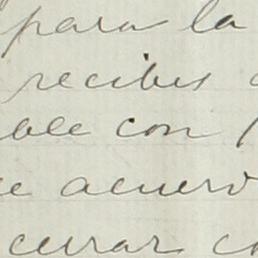 para la
recibes
ble con
acuerd
cerrar